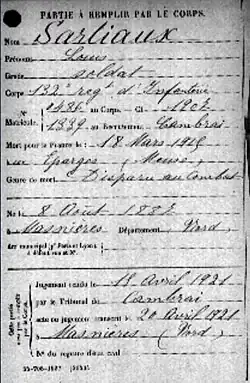 PARTIE À REMPLIR PAR LE CORPS.
Nom Sarliaux
Prénoms Louis
Grade soldat
Corps 132e regt d'Infanterie
N° au Corps. Cl 1907
Matricule. 1339 au Recrutement Cambrai
Mort pour la France le 18 Mars 1915
Eparges (Meuse)
Genre de mort Disparu au Combat
Né le 8 Août 1887
Masnieres Département Nord
Arr municipal (pr Paris et Lyon),
à défaut rue et N°.
Cette partie n'est pas à remplir par le Corps.
Jugement rendu le 15 Avril 1921
par le Tribunal de Cambrai
acte ou jugement transcrit le 20 Avril 1921
Masnieres (Nord)
N° du registre d'état civil